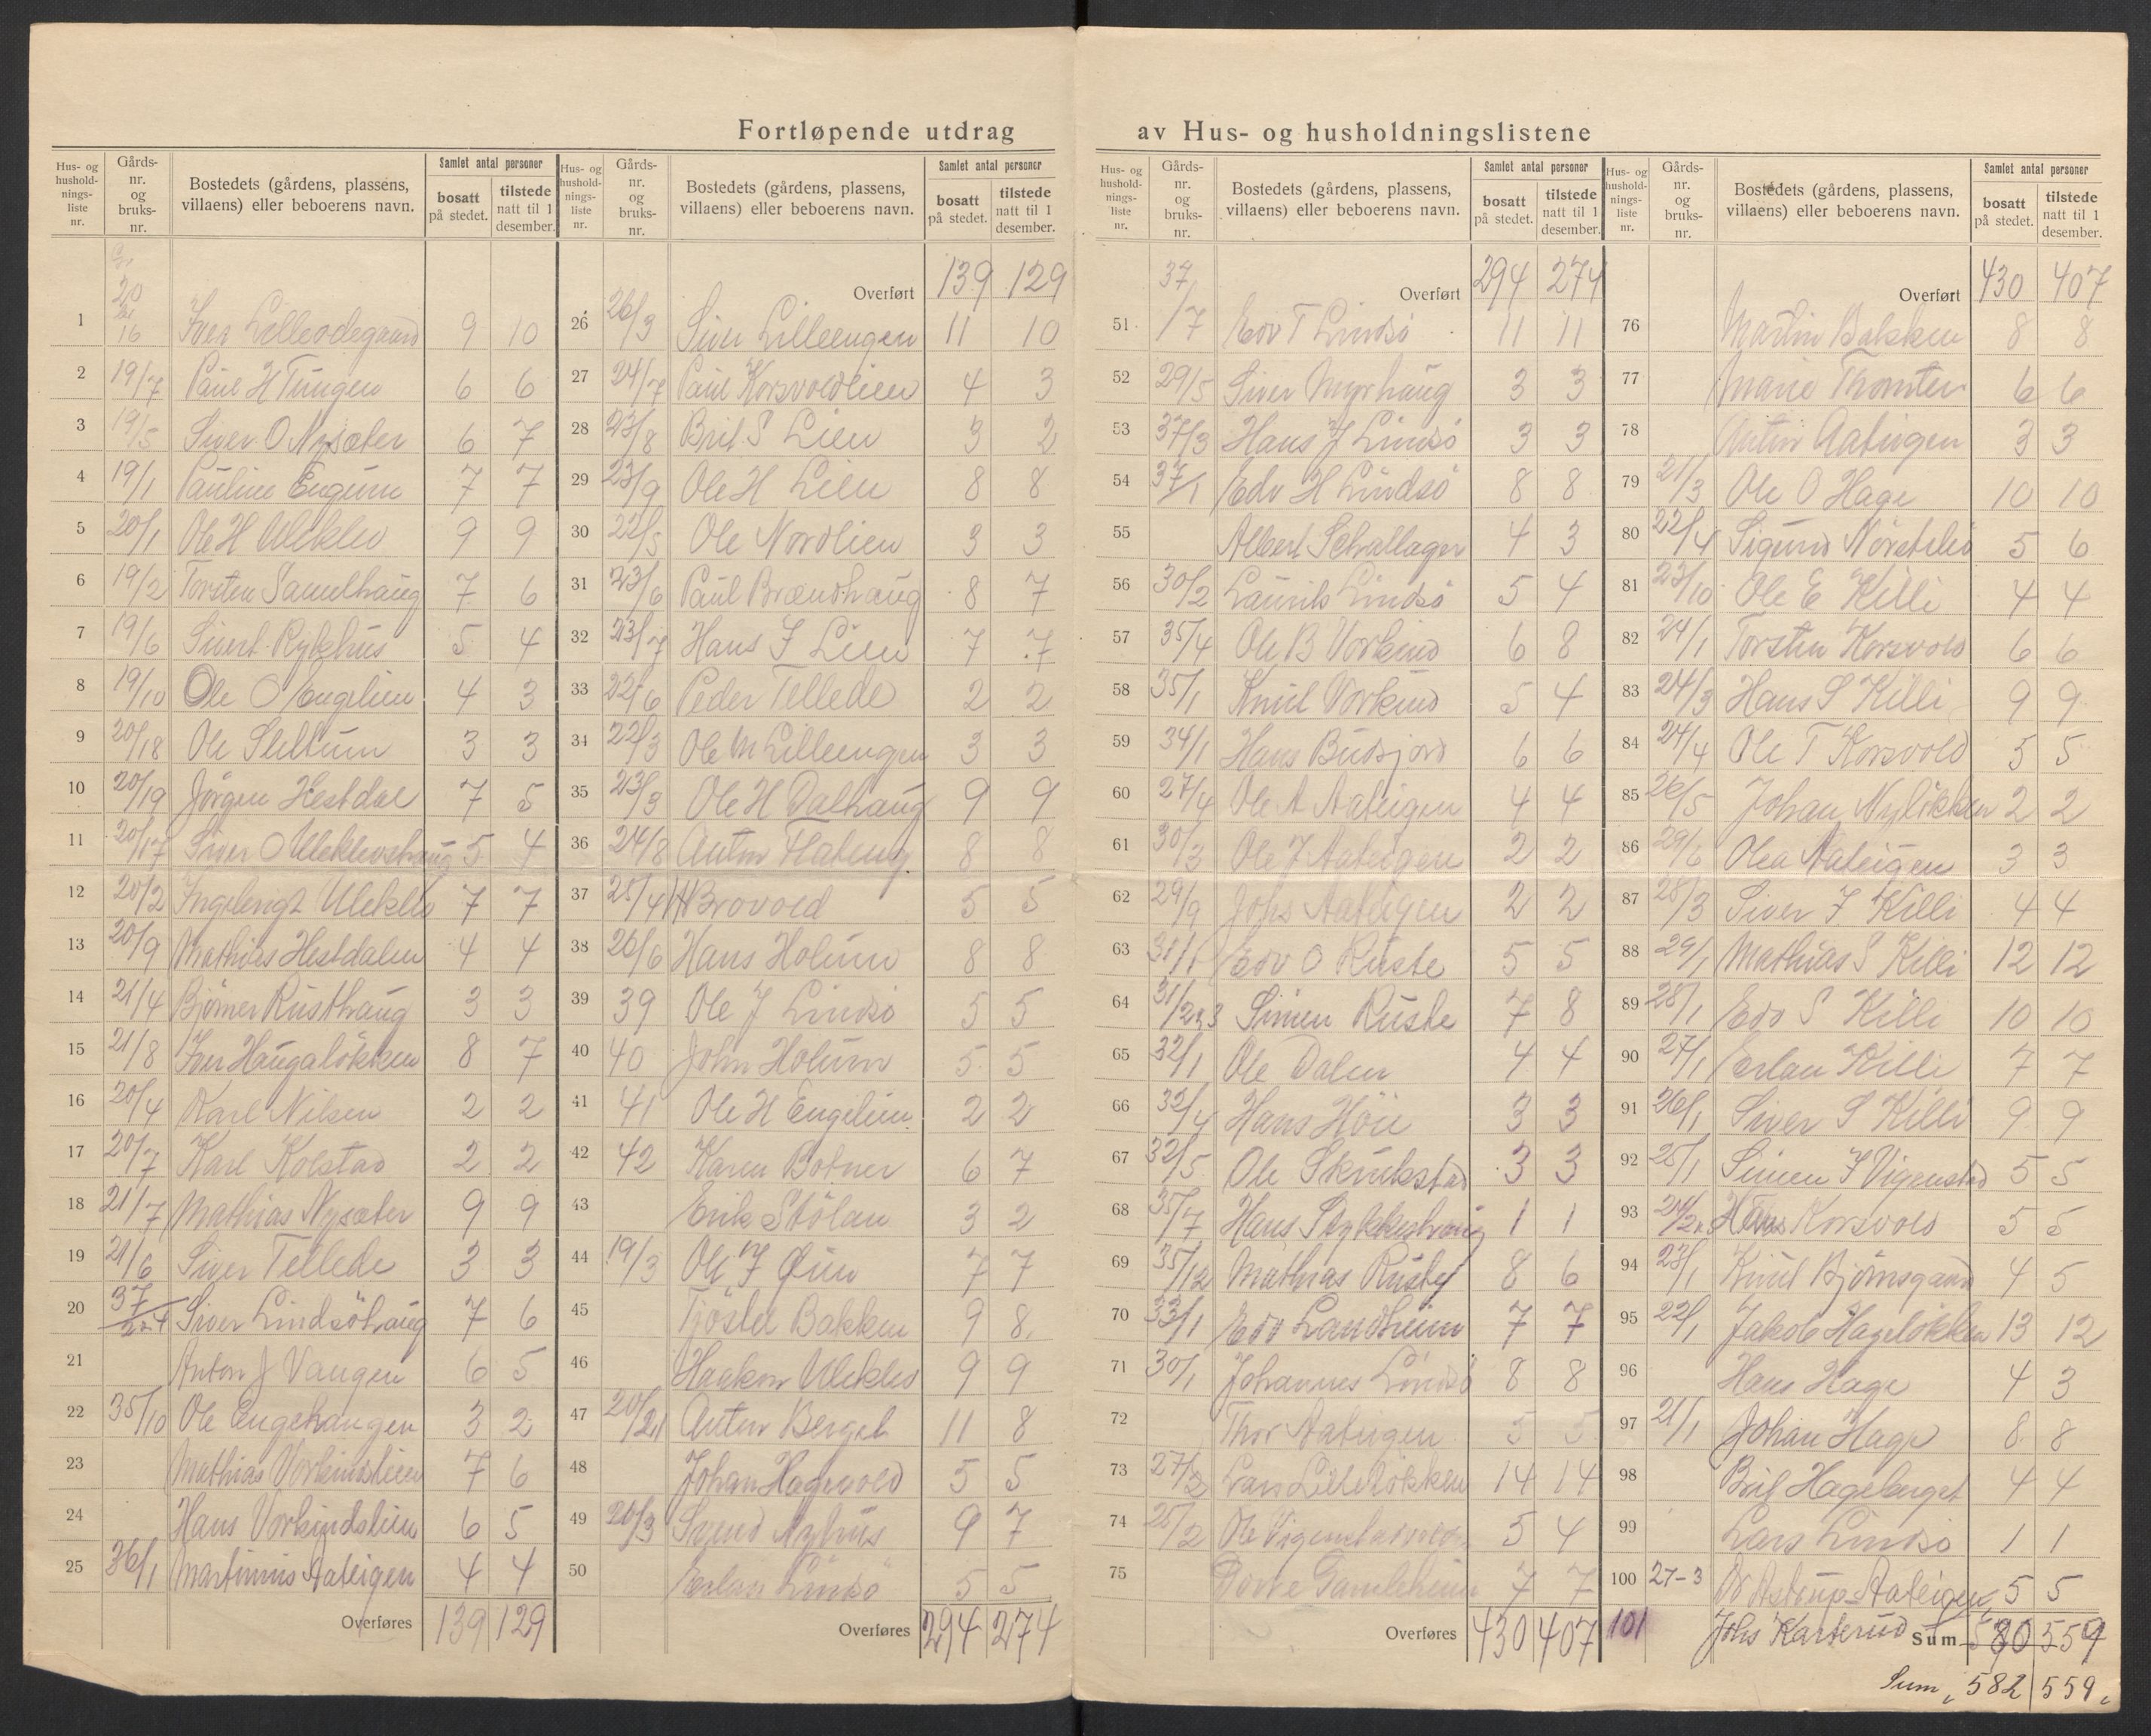 Fortløpende utdrag av Hus- og husholdningslistene
Hus- og husholdnings-liste nr. | Gårds-nr. og bruks-nr. | Bostedets (gårdens, plassens, villaens) eller beboerens navn. | Samlet antal personer bosatt på stedet. | tilstede natt til 1 desember.
1 16 Iver Lilleødegaard 9 10
2 19/7 Paul H Tungen 6 6
3 19/5 Siver O Nysæter 6 7
4 19/1 Pauline Engum 7 7
5 20/1 Ole H Uleklev 9 9
6 19/2 Torsten Samelhaug 7 6
7 19/6 Sivert Rykhus 5 4
8 19/10 Ole O Engelien 4 3
9 20/18 Ole Slettum 3 3
10 20/19 Jörgen Hestdal 7 5
11 20/17 Siver O Uleklevshaug 5 4
12 20/2 Ingebrigt Uleklev 7 7
13 20/9 Mathias Hestdalen 4 4
14 21/4 Björner Rusthaug 3 3
15 21/8 Iver Haugalökken 8 7
16 20/4 Karl Nilsen 2 2
17 20/7 Karl Kolstad 2 2
18 21/7 Mathias Nysæter 9 9
19 21/6 Siver Tellede 3 3
20 37 Siver Lindsöhaug 7 6
21 Anton J Vangen 6 5
22 35/10 Ole Engehaugen 3 2
23 Mathias Vorkinslien 7 6
24 Hans Vorkindslien 6 5
25 36/1 Martinius Aateigen 4 4
Overføres 139 129
Hus- og husholdnings-liste nr. | Gårds-nr. og bruks-nr. | Bostedets (gårdens, plassens, villaens) eller beboerens navn. | Samlet antal personer bosatt på stedet. | tilstede natt til 1 desember.
Overført 139 129
26 26/3 Siver Lilleengen 11 10
27 24/7 Paul Korsvoldlien 4 3
28 23/8 Brit S Lien 3 2
29 23/9 Ole H Lien 8 8
30 22/5 Ole Nordlien 3 3
31 23/6 Paul Brændhaug 8 7
32 23/7 Hans J Lien 7 7
33 22/6 Peder Tellede 2 2
34 22/3 Ole M Lilleengen 3 3
35 23/3 Ole H Dalhaug 9 9
36 24/8 Anton Flateng 8 8
37 25/4 H Brovold 5 5
38 26/6 Hans Holum 8 8
39 39 Ole J Lindsö 5 5
40 40 John Holum 5 5
41 41 Ole H Engelien 2 2
42 42 Karen Botner 6 7
43 Erik Stölan 3 2
44 19/3 Ole J Øien 7 7
45 Tjöstel Bakken 9 8
46 Haakon Uleklev 9 9
47 20/21 Anton Berget 11 8
48 Johan Hagevold 5 5
49 20/3 Svend Nyhus 9 7
50 Erlan Lindsö 5 5
Overføres 294 274
Hus- og husholdnings-liste nr. | Gårds-nr. og bruks-nr. | Bostedets (gårdens, plassens, villaens) eller beboerens navn. | Samlet antal personer bosatt på stedet. | tilstede natt til 1 desember.
Overført 294 274
51 37/7 Edv T Lindsö 11 11
52 29/5 Siver Myrhaug 3 3
53 37/3 Hans J Lindsö 3 3
54 37/1 Edv H Lindsö 8 8
55 Albert Schallager 4 3
56 30/2 Laurits Lindsö 5 4
57 35/4 Ole B Vorkind 6 8
58 35/1 Knut Vorkind 5 4
59 34/1 Hans Budsjord 6 6
60 27/4 Ole A Aateigen 4 4
61 30/3 Ole J Aateigen 2 2
62 29/9 Johs Aateigen 2 2
63 31/1 Edv O Ruste 5 5
64 31/2,3 Simen Ruste 7 8
65 32/1 Ole Dalen 4 4
66 32/4 Hans Höie 3 3
67 32/5 Ole Skrukstad 3 3
68 35/7 Hans Stykkeshaug 1 1
69 35/12 Mathias Rusty 8 6
70 33/1 Edv Landheim 7 7
71 30/1 Johannes Lindsö 8 8
72 Thor Aateigen 5 5
73 27/2 Lars Lillelökken 14 14
74 25/2 Ole Vigenstadvold 5 4
75 Dovre Gamleheim 7 7
Overføres 430 407
Hus- og husholdnings-liste nr. | Gårds-nr. og bruks-nr. | Bostedets (gårdens, plassens, villaens) eller beboerens navn. | Samlet antal personer bosatt på stedet. | tilstede natt til 1 desember.
Overført 430 407
76 Martin Bakken 8 8
77 Marie Tromter 6 6
78 Anton Aateigen 3 3
79 21/3 Ole O Hage 10 10
80 22/4 Sigurd Nørstelid 5 6
81 23/10 Ole E Killi 4 4
82 24/1 Torsten Korsvold 6 6
83 24/3 Hans S Killi 9 9
84 24/4 Ole T Korsvold 5 5
85 26/5 Johan Nylökken 2 2
86 29/6 Olea Aateigen 3 3
87 28/3 Siver J Killi 4 4
88 29/1 Mathias S Killi 12 12
89 28/1 Edv S Killi 10 10
90 27/1 Erlan Killi 7 7
91 26/1 Siver S Killi 9 9
92 25/1 Simen J Vigenstad 5 5
93 24/2 Hans Korsvold 5 5
94 23/1 Knut Björnsgaard 4 5
95 22/1 Jakob Hagelökken 13 12
96 Hans Hage 4 3
97 21/1 Johan Hage 8 8
98 Brit Hageberget 4 4
99 Lars Lindsö 1 1
100 27-3 Dr Astrup Aateigen 5 5
101 Johs Karterud
Sum 580 559
Sum, 582 559,